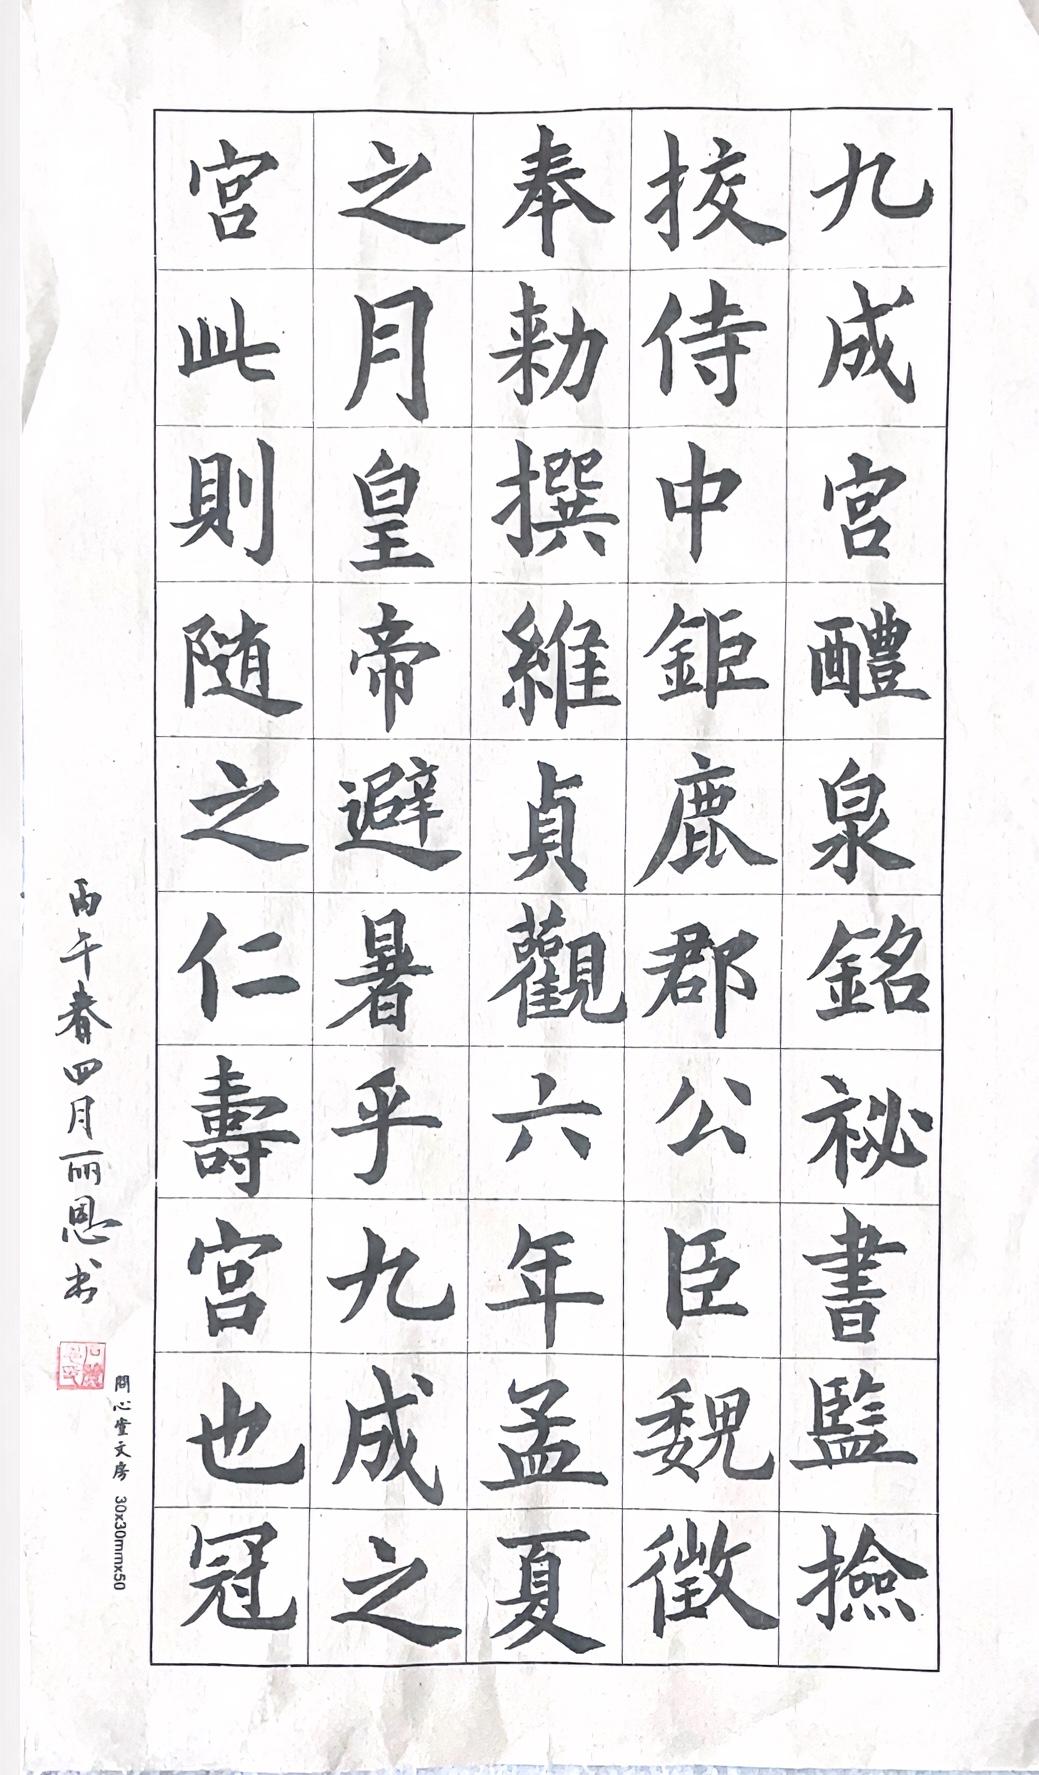 九成宫醴泉銘祕書監撿
挍侍中鉅鹿郡公臣魏徵
奉勑撰維貞觀六年孟夏
之月皇帝避暑乎九成之
宫此則随之仁壽宫也冠
丙午春四月丽恩书
問心堂文房 30x30mmx50